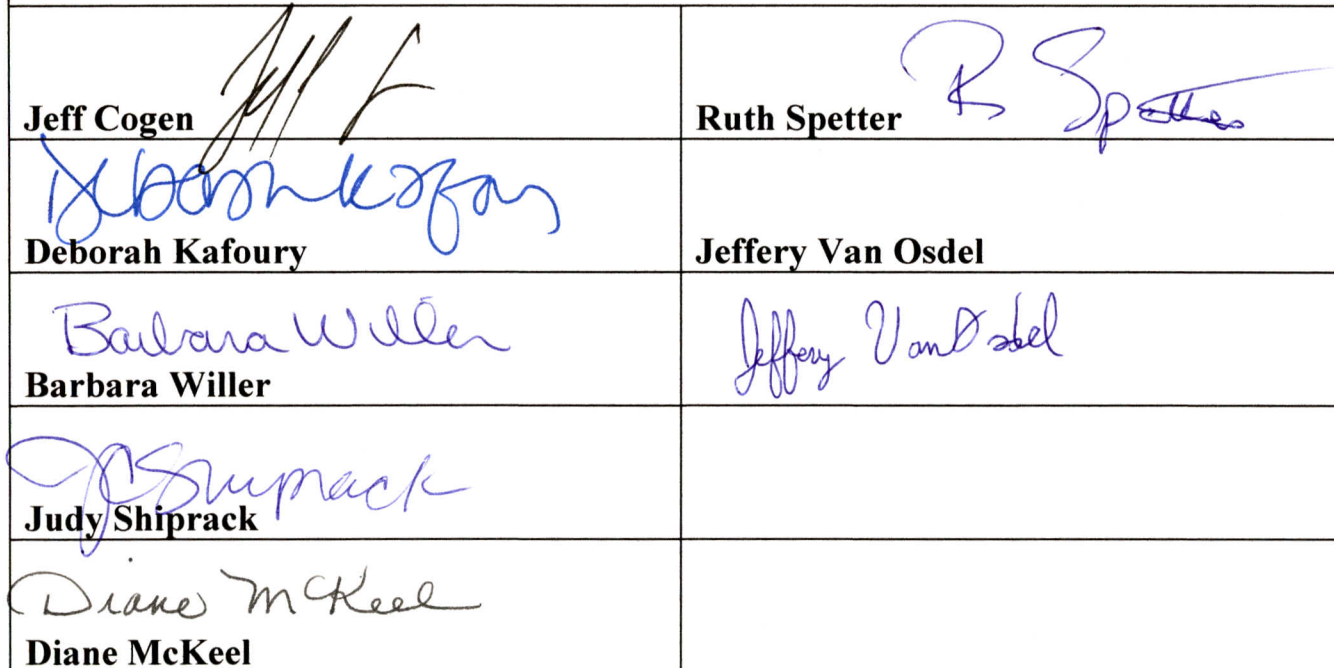 Jeff Cogen
Ruth Spetter R Spetter
Deborah Kafoury
Deborah Kafoury
Jeffery Van Osdel
Barbara Willer
Barbara Willer
Jeffery Van Osdel
JC Shiprack
Judy Shiprack
Diane McKeel
Diane McKeel